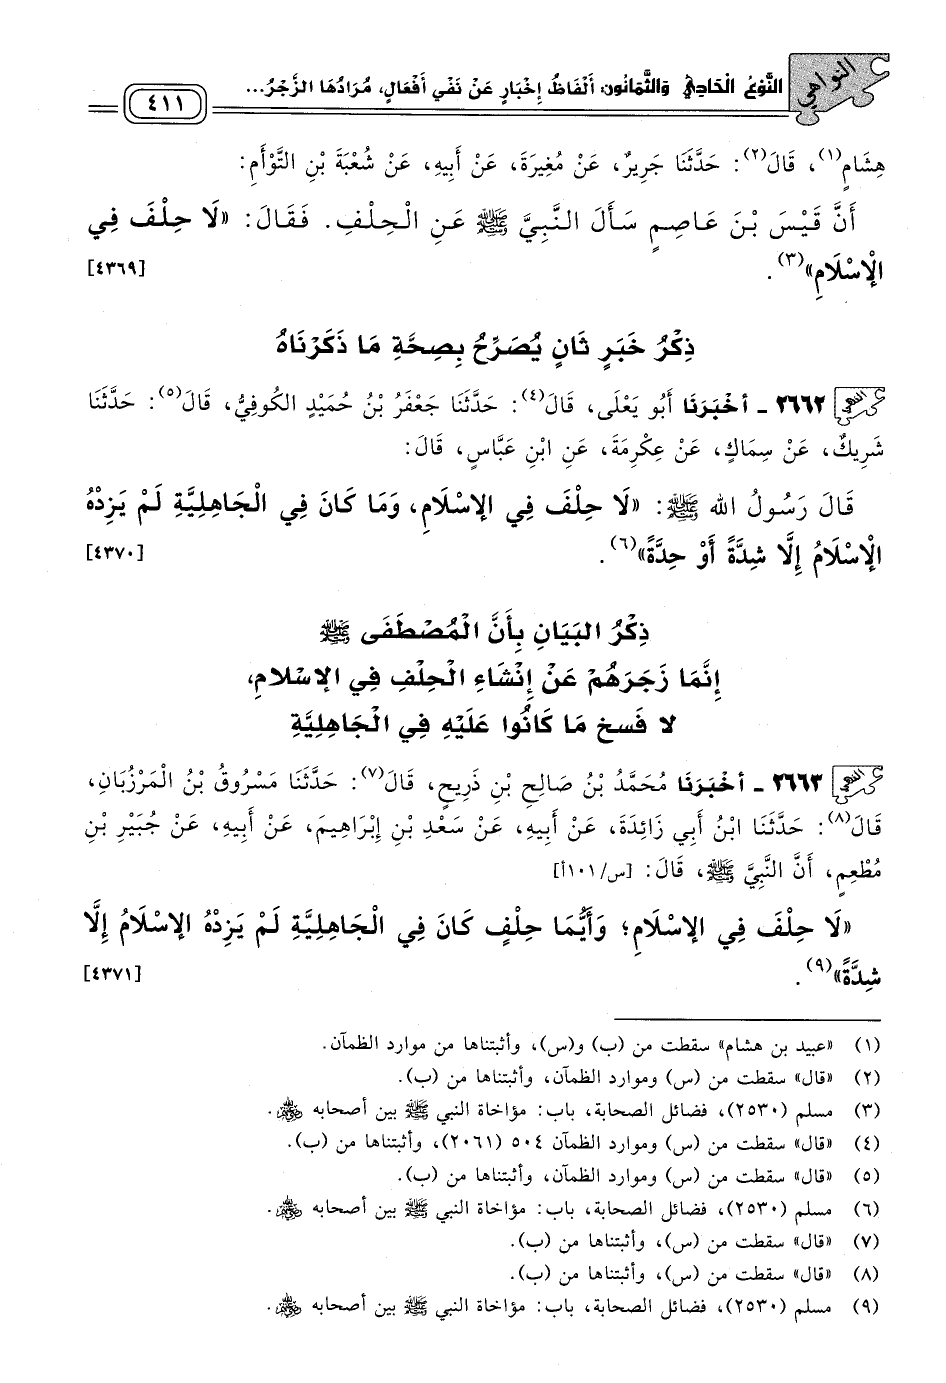 النواهي
النَّوْعُ الْحَادِي وَالثَّمَانُون: أَلْفَاظُ إِخْبَارٍ عَنْ نَفْيِ أَفْعَالٍ، مُرَادُهَا الزَّجْرُ...
٤١١
هِشَامٍ(١)، قَالَ(٢): حَدَّثَنَا جَرِيرٌ، عَنْ مُغِيرَةَ، عَنْ أَبِيهِ، عَنْ شُعْبَةَ بْنِ التَّوْأَمِ:
أَنَّ قَيْسَ بْنَ عَاصِمٍ سَأَلَ النَّبِيَّ ﷺ عَنِ الْحِلْفِ. فَقَالَ: «لَا حِلْفَ فِي
الْإِسْلَامِ»(٣). [٤٣٦٩]
ذِكْرُ خَبَرٍ ثَانٍ يُصَرِّحُ بِصِحَّةِ مَا ذَكَرْنَاهُ
٣٦٦٢ - أَخْبَرَنَا أَبُو يَعْلَى، قَالَ(٤): حَدَّثَنَا جَعْفَرُ بْنُ حُمَيْدٍ الكُوفِيُّ، قَالَ(٥): حَدَّثَنَا
شَرِيكٌ، عَنْ سِمَاكٍ، عَنْ عِكْرِمَةَ، عَنِ ابْنِ عَبَّاسٍ، قَالَ:
قَالَ رَسُولُ الله ﷺ: «لَا حِلْفَ فِي الإِسْلَامِ، وَمَا كَانَ فِي الْجَاهِلِيَّةِ لَمْ يَزِدْهُ
الْإِسْلَامُ إِلَّا شِدَّةً أَوْ حِدَّةً»(٦). [٤٣٧٠]
ذِكْرُ البَيَانِ بِأَنَّ الْمُصْطَفَى ﷺ
إِنَّمَا زَجَرَهُمْ عَنْ إِنْشَاءِ الْحِلْفِ فِي الإِسْلامِ،
لا فَسخِ مَا كَانُوا عَلَيْهِ فِي الْجَاهِلِيَّةِ
٣٦٦٣ - أَخْبَرَنَا مُحَمَّدُ بْنُ صَالِحِ بْنِ ذَرِيحٍ، قَالَ(٧): حَدَّثَنَا مَسْرُوقُ بْنُ الْمَرْزُبَانِ،
قَالَ(٨): حَدَّثَنَا ابْنُ أَبِي زَائِدَةَ، عَنْ أَبِيهِ، عَنْ سَعْدِ بْنِ إِبْرَاهِيمَ، عَنْ أَبِيهِ، عَنْ جُبَيْرِ بْنِ
مُطْعِمٍ، أَنَّ النَّبِيَّ ﷺ، قَالَ: [س/١٠١أ]
«لَا حِلْفَ فِي الإِسْلَامِ؛ وَأَيُّمَا حِلْفٍ كَانَ فِي الْجَاهِلِيَّةِ لَمْ يَزِدْهُ الإِسْلَامُ إِلَّا
شِدَّةً»(٩). [٤٣٧١]
(١) «عبيد بن هشام» سقطت من (ب) و(س)، وأثبتناها من موارد الظمآن.
(٢) «قال» سقطت من (س) وموارد الظمآن، وأثبتناها من (ب).
(٣) مسلم (٢٥٣٠)، فضائل الصحابة، باب: مؤاخاة النبي ﷺ بين أصحابه ﵃.
(٤) «قال» سقطت من (س) وموارد الظمآن ٥٠٤ (٢٠٦١)، وأثبتناها من (ب).
(٥) «قال» سقطت من (س) وموارد الظمآن، وأثبتناها من (ب).
(٦) مسلم (٢٥٣٠)، فضائل الصحابة، باب: مؤاخاة النبي ﷺ بين أصحابه ﵃.
(٧) «قال» سقطت من (س)، وأثبتناها من (ب).
(٨) «قال» سقطت من (س)، وأثبتناها من (ب).
(٩) مسلم (٢٥٣٠)، فضائل الصحابة، باب: مؤاخاة النبي ﷺ بين أصحابه ﵃.